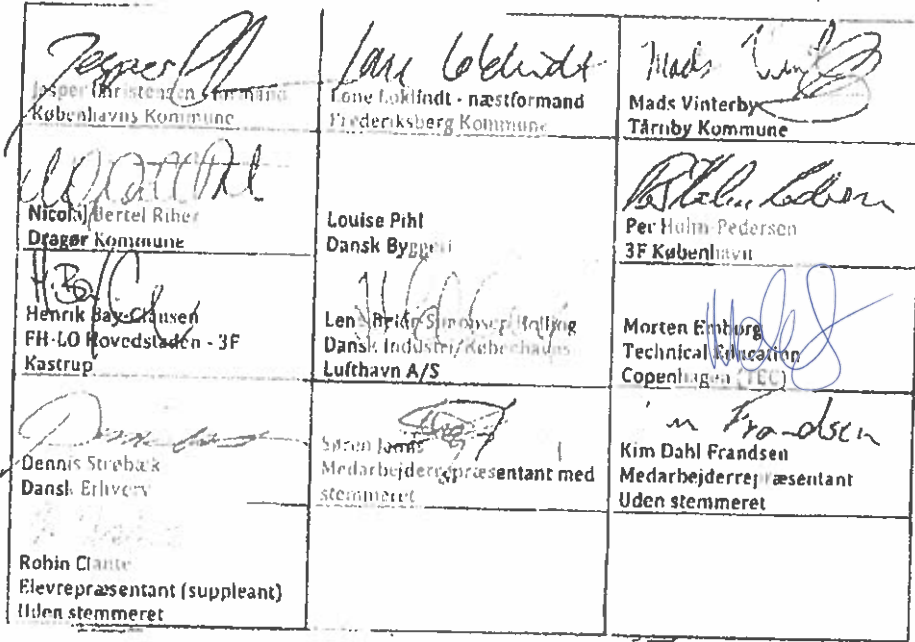 Jesper
Jesper Christensen - formand
Københavns Kommune
Lone Loklindt
Lone Loklindt - næstformand
Frederiksberg Kommune
Mads Vinterby
Mads Vinterby
Tårnby Kommune
Nicolaj Bertel Riber
Dragør Kommune
Louise Pihl
Dansk Byggeri
Per Holm Pedersen
Per Holm-Pedersen
3F København
H. Bay
Henrik Bay-Clausen
FH-LO Hovedstaden - 3F
Kastrup
Dansk Industri/Københavns
Lufthavn A/S
Morten Emborg
Technical Education
Copenhagen (TEC)
Dennis Strøbæk
Dansk Erhverv
Søren
Medarbejderrepræsentant med
stemmeret
Frandsen
Kim Dahl Frandsen
Medarbejderrepræsentant
Uden stemmeret
Robin Clante
Elevrepræsentant (suppleant)
Uden stemmeret